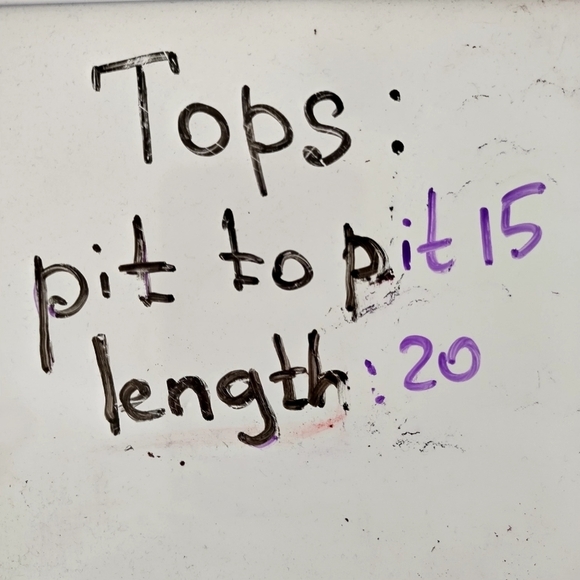 Tops:
pit to pit 15
length: 20